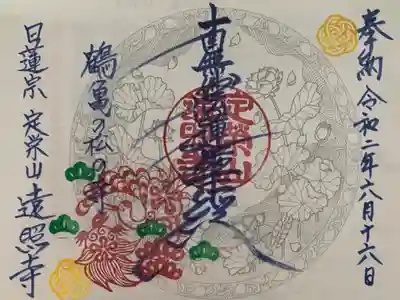 奉納 令和二年六月十六日
南無妙法蓮華経
鶴亀の松の寺
日蓮宗 定栄山 遠照寺